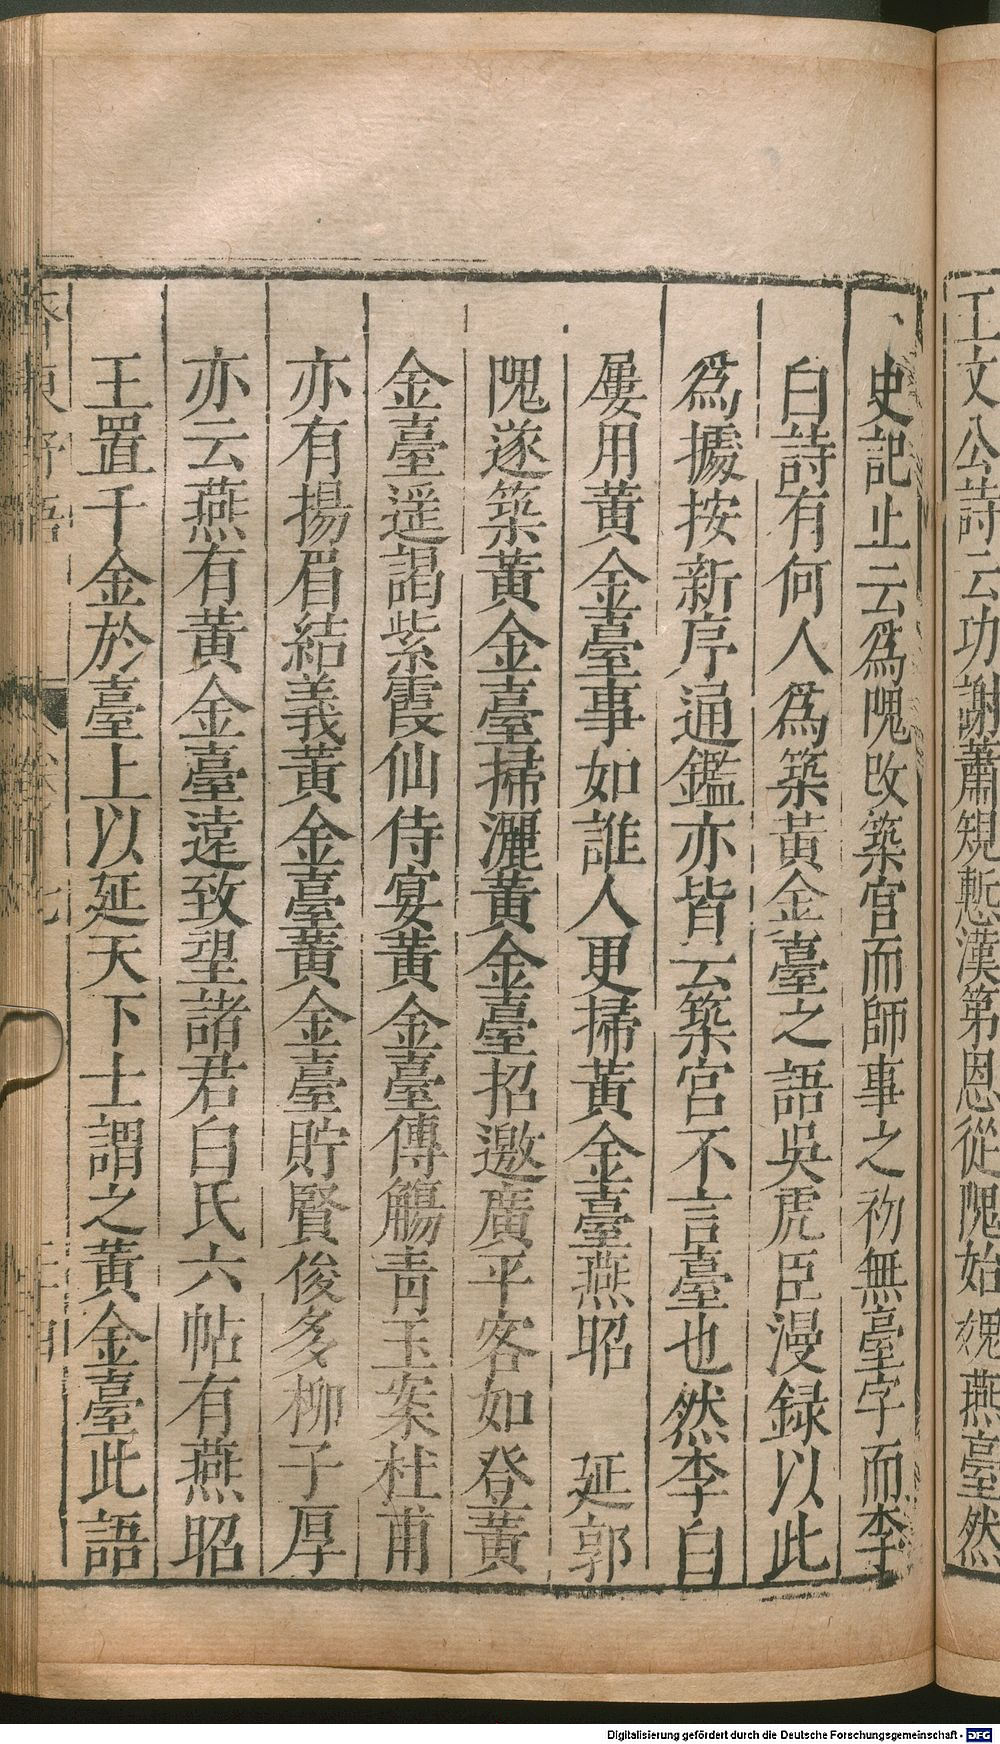 工文公詩云功謝蕭規慙漢第恩從隗始媿燕臺然
史記止云爲隗改築宫而師事之初無臺字而李
白詩有何人爲築黃金臺之語吳虎臣漫録以此
爲據按新序通鑑亦皆云築宫不言臺也然李白
屢用黃金臺事如誰人更掃黃金臺燕昭 延郭
隗遂築黃金臺掃灑黃金臺招邀廣平客如登黃
金臺遥謁紫霞仙侍宴黃金臺傳觴青玉案杜甫
亦有揚眉結義黃金臺黃金臺貯賢俊多柳子厚
亦云燕有黃金臺遠致望諸君白氏六帖有燕昭
王置千金於臺上以延天下士謂之黃金臺此語
齊東野語
七
Digitalisierung gefördert durch die Deutsche Forschungsgemeinschaft - DFG